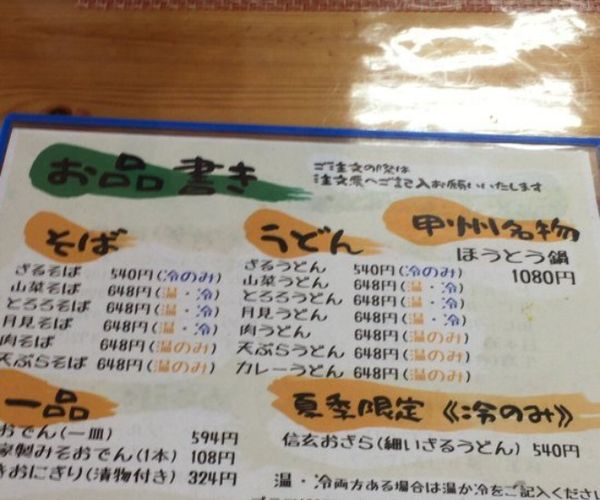 お品書き
ご注文の際は
注文票へご記入お願いいたします
そば
ざるそば 540円(冷のみ)
山菜そば 648円(温・冷)
とろろそば 648円(温・冷)
月見そば 648円(温・冷)
肉そば 648円(温のみ)
天ぷらそば 648円(温のみ)
うどん
ざるうどん 540円(冷のみ)
山菜うどん 648円(温・冷)
とろろうどん 648円(温・冷)
月見うどん 648円(温・冷)
肉うどん 648円(温のみ)
天ぷらうどん 648円(温のみ)
カレーうどん 648円(温のみ)
甲州名物
ほうとう鍋
1080円
一品
おでん(一皿) 594円
家製みそおでん(1本) 108円
きおにぎり(漬物付き) 324円
夏季限定《冷のみ》
信玄おざら(細いざるうどん) 540円
温・冷両方ある場合は温か冷をご記入ください